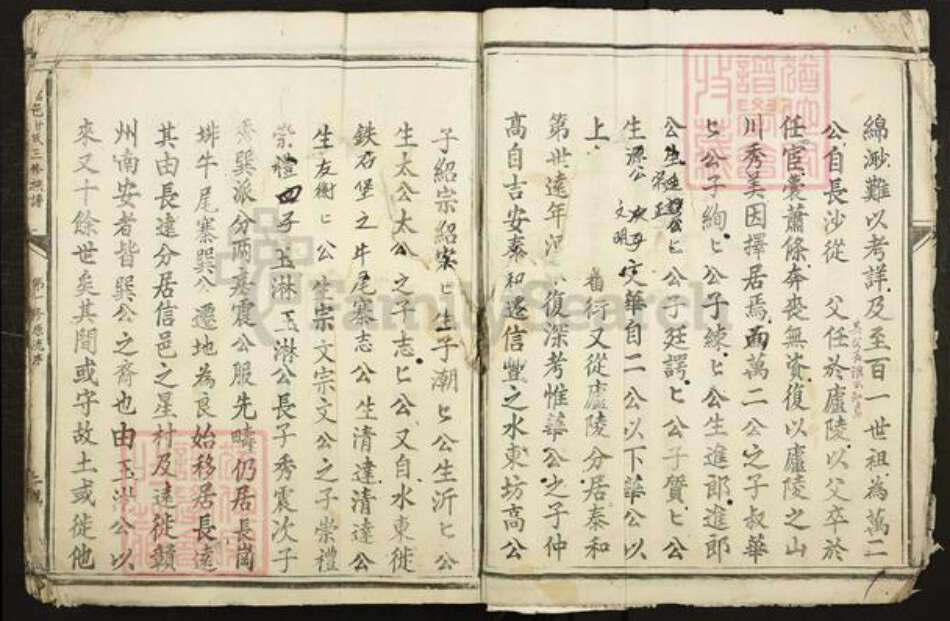 綿渺難以考詳及至百一世祖為萬二
公自長沙從父任於廬陵以父卒於
任宦囊蕭條奔喪無資復以廬陵之山
川秀美因擇居焉面萬二公之子叔華
匕公子絢匕公子練匕公生進郎進郎
公生 公匕公子廷諤匕公子質匕公
生源公 文明 華自二公以下華公以
上 衍又從廬陵分居泰和
第世遠年 復深考惟華公之子仲
高自吉安泰和遷信豐之水東坊高公
子紹宗紹宗匕生子潮匕公生沂匕公
生太公太公之子志匕公又自水東徙
鉄石堡之牛尾寨志公生清達清達公
生友衡匕公生宗文宗文公之子崇禮
崇禮四子玉淋玉淋公長子秀震次子
秀巽派分兩 震公服先疇仍居長崗
排牛尾寨巽公遷地為良始移居長遠
其由長遠分居信邑之星村及遠徙贛
州南安者皆巽公之裔也由玉淋公以
來又十餘世矣其間或守故土或徙他
邑甘氏三修族譜
FamilySearch